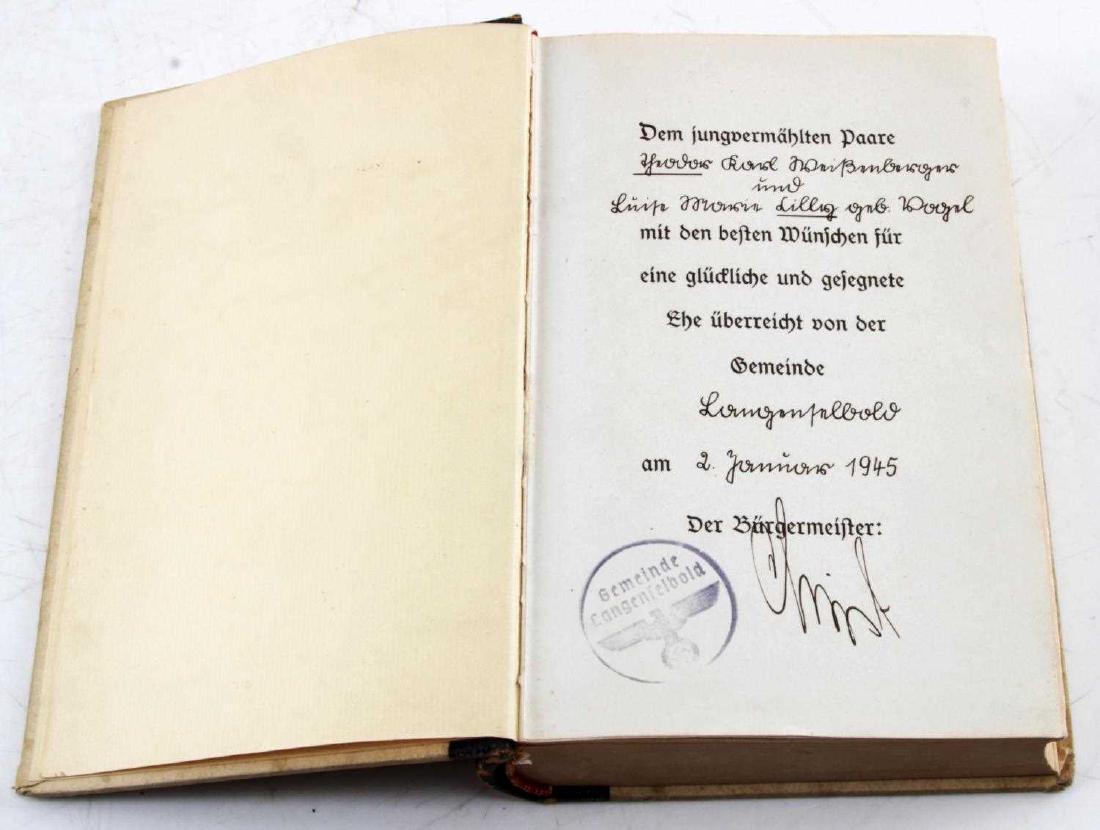 Dem jungvermählten Paare
Theodor Karl Weißenberger
und
Luise Marie Lilly geb. Vogel
mit den besten Wünschen für
eine glückliche und gesegnete
Ehe überreicht von der
Gemeinde
Langenselbold
am 2. Januar 1945
Der Bürgermeister:
Gemeinde
Langenselbold